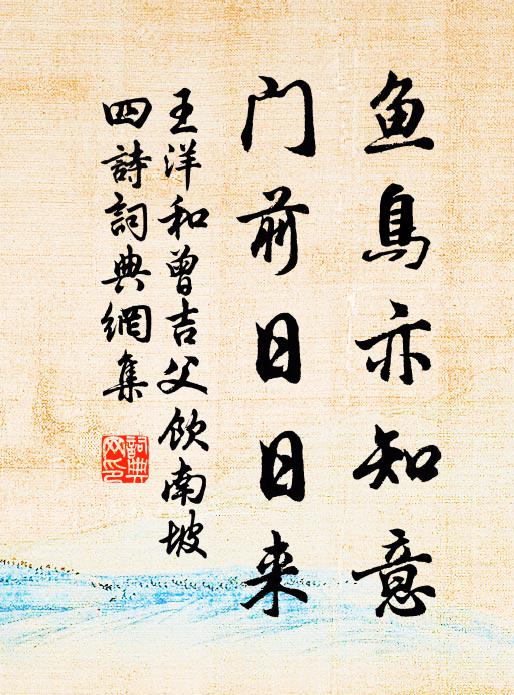 鱼鳥亦知意
门前日日来
王洋和曾吉父飲南坡
四詩詞典網集
詞典网印